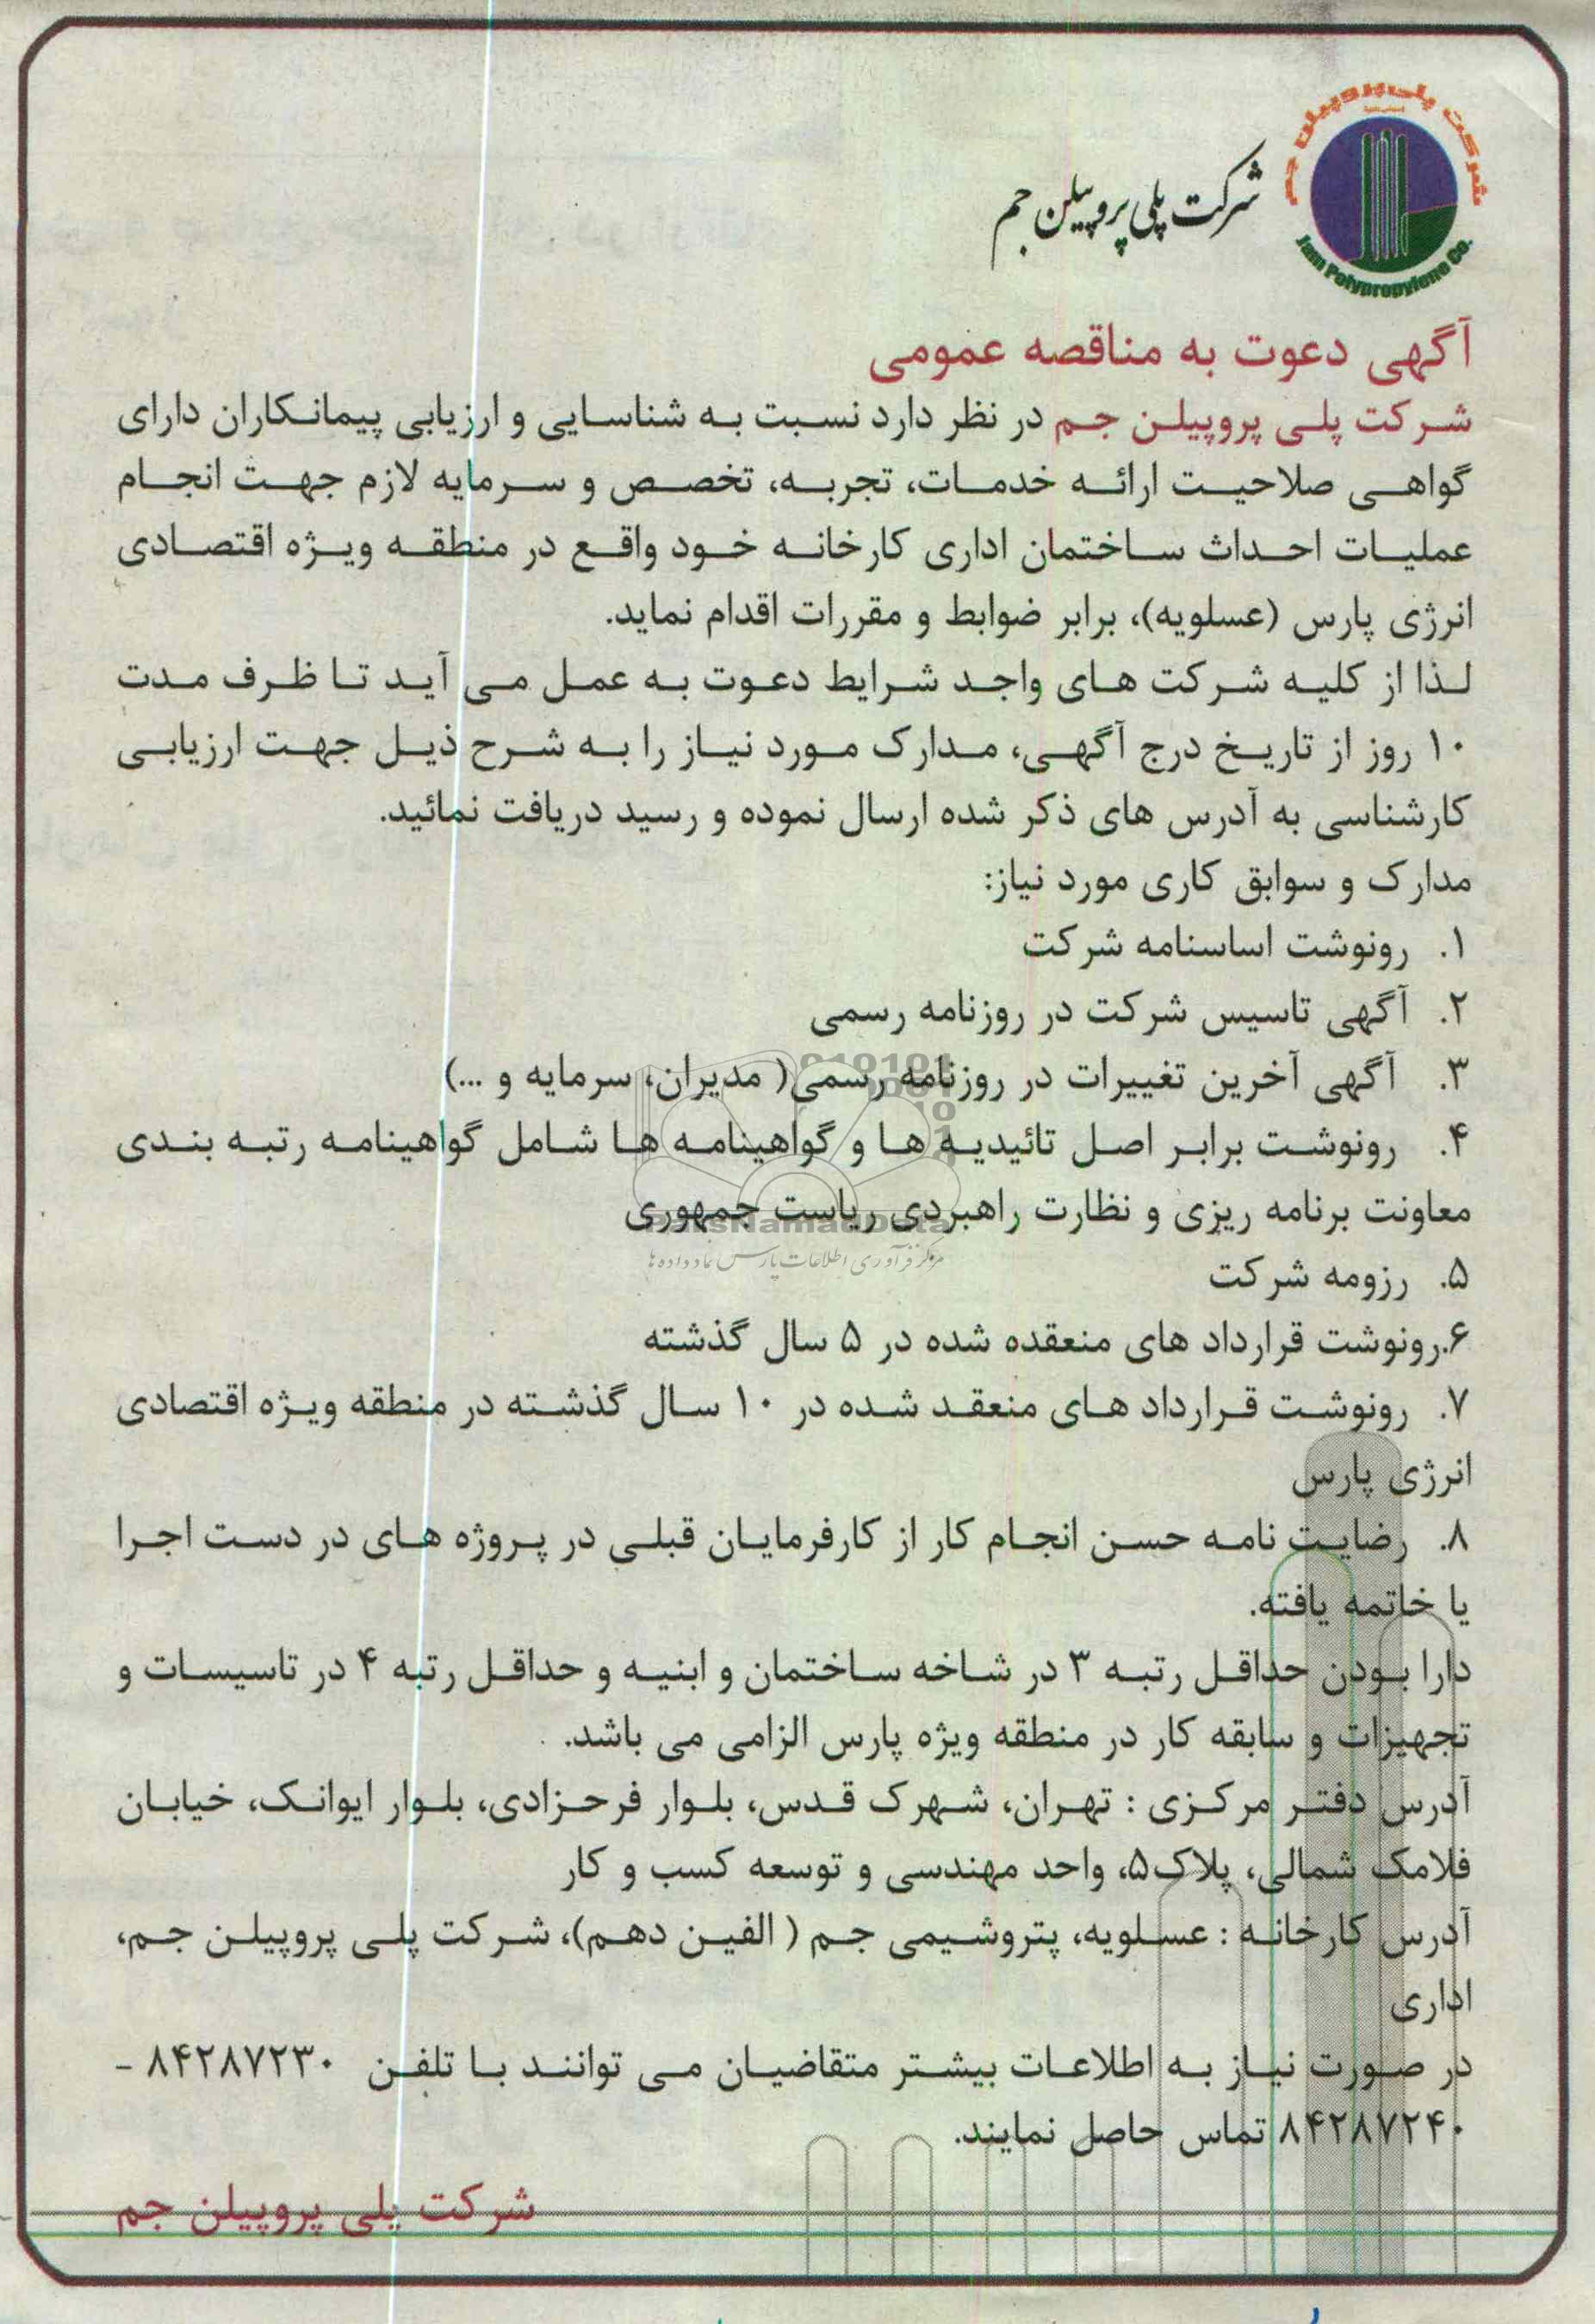 شرکت پلی پروپیلن جم
Jam Polypropylene Co.
شرکت پلی پروپیلن جم
آگهی دعوت به مناقصه عمومی
شرکت پلی پروپیلن جم در نظر دارد نسبت به شناسایی و ارزیابی پیمانکاران دارای
گواهی صلاحیت ارائه خدمات، تجربه، تخصص و سرمایه لازم جهت انجام
عملیات احداث ساختمان اداری کارخانه خود واقع در منطقه ویژه اقتصادی
انرژی پارس (عسلویه)، برابر ضوابط و مقررات اقدام نماید.
لذا از کلیه شرکت های واجد شرایط دعوت به عمل می آید تا ظرف مدت
۱۰ روز از تاریخ درج آگهی، مدارک مورد نیاز را به شرح ذیل جهت ارزیابی
کارشناسی به آدرس های ذکر شده ارسال نموده و رسید دریافت نمائید.
مدارک و سوابق کاری مورد نیاز:
۱. رونوشت اساسنامه شرکت
۲. آگهی تاسیس شرکت در روزنامه رسمی
۳. آگهی آخرین تغییرات در روزنامه رسمی( مدیران، سرمایه و ...)
۴. رونوشت برابر اصل تائیدیه ها و گواهینامه ها شامل گواهینامه رتبه بندی
معاونت برنامه ریزی و نظارت راهبردی ریاست جمهوری
ParsNamadData
مرکز فرآوری اطلاعات پارس نماد داده ها
۵. رزومه شرکت
۶.رونوشت قرارداد های منعقده شده در ۵ سال گذشته
۷. رونوشت قرارداد های منعقد شده در ۱۰ سال گذشته در منطقه ویژه اقتصادی
انرژی پارس
۸. رضایت نامه حسن انجام کار از کارفرمایان قبلی در پروژه های در دست اجرا
یا خاتمه یافته.
دارا بودن حداقل رتبه ۳ در شاخه ساختمان و ابنیه و حداقل رتبه ۴ در تاسیسات و
تجهیزات و سابقه کار در منطقه ویژه پارس الزامی می باشد.
آدرس دفتر مرکزی : تهران، شهرک قدس، بلوار فرحزادی، بلوار ایوانک، خیابان
فلامک شمالی، پلاک۵، واحد مهندسی و توسعه کسب و کار
آدرس کارخانه : عسلویه، پتروشیمی جم ( الفین دهم)، شرکت پلی پروپیلن جم،
اداری
در صورت نیاز به اطلاعات بیشتر متقاضیان می توانند با تلفن ۸۴۲۸۷۲۳۰ -
۸۴۲۸۷۲۴۰ تماس حاصل نمایند.
شرکت پلی پروپیلن جم